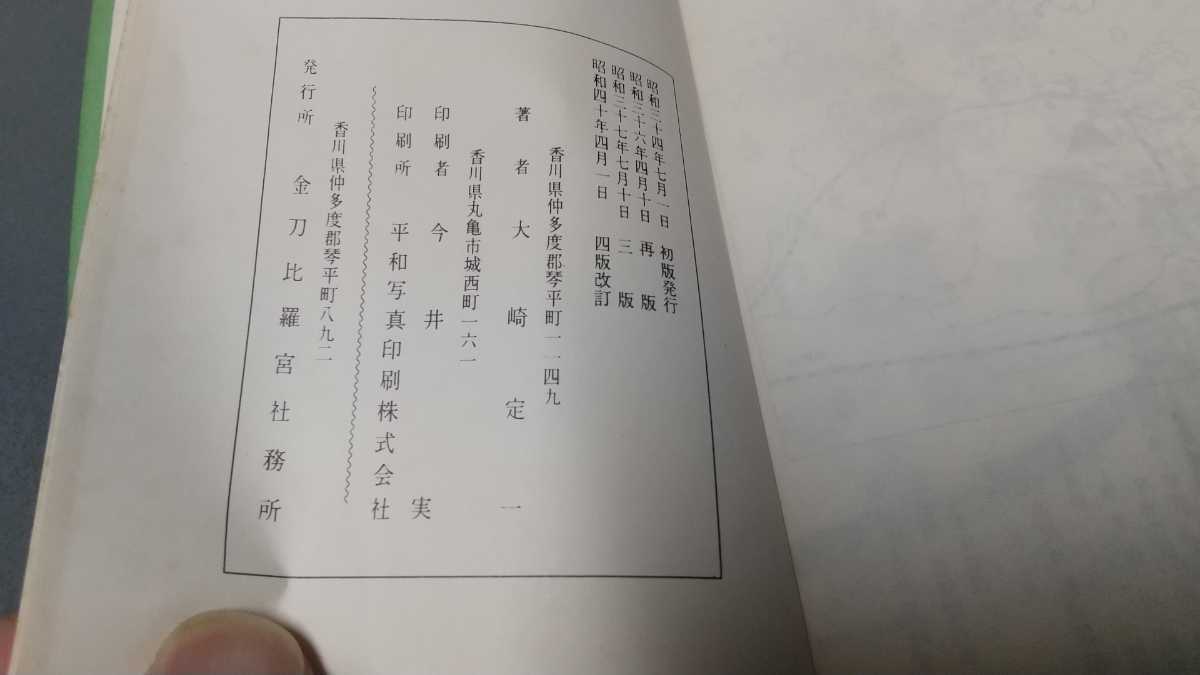 昭和三十四年七月一日 初版発行
昭和三十六年四月十日 再版
昭和三十七年七月十日 三版
昭和四十年四月一日 四版改訂
香川県仲多度郡琴平町一一四九
著者 大崎定一
香川県丸亀市城西町一六一
印刷者 今井実
印刷所 平和写真印刷株式会社
香川県仲多度郡琴平町八九二
発行所 金刀比羅宮社務所